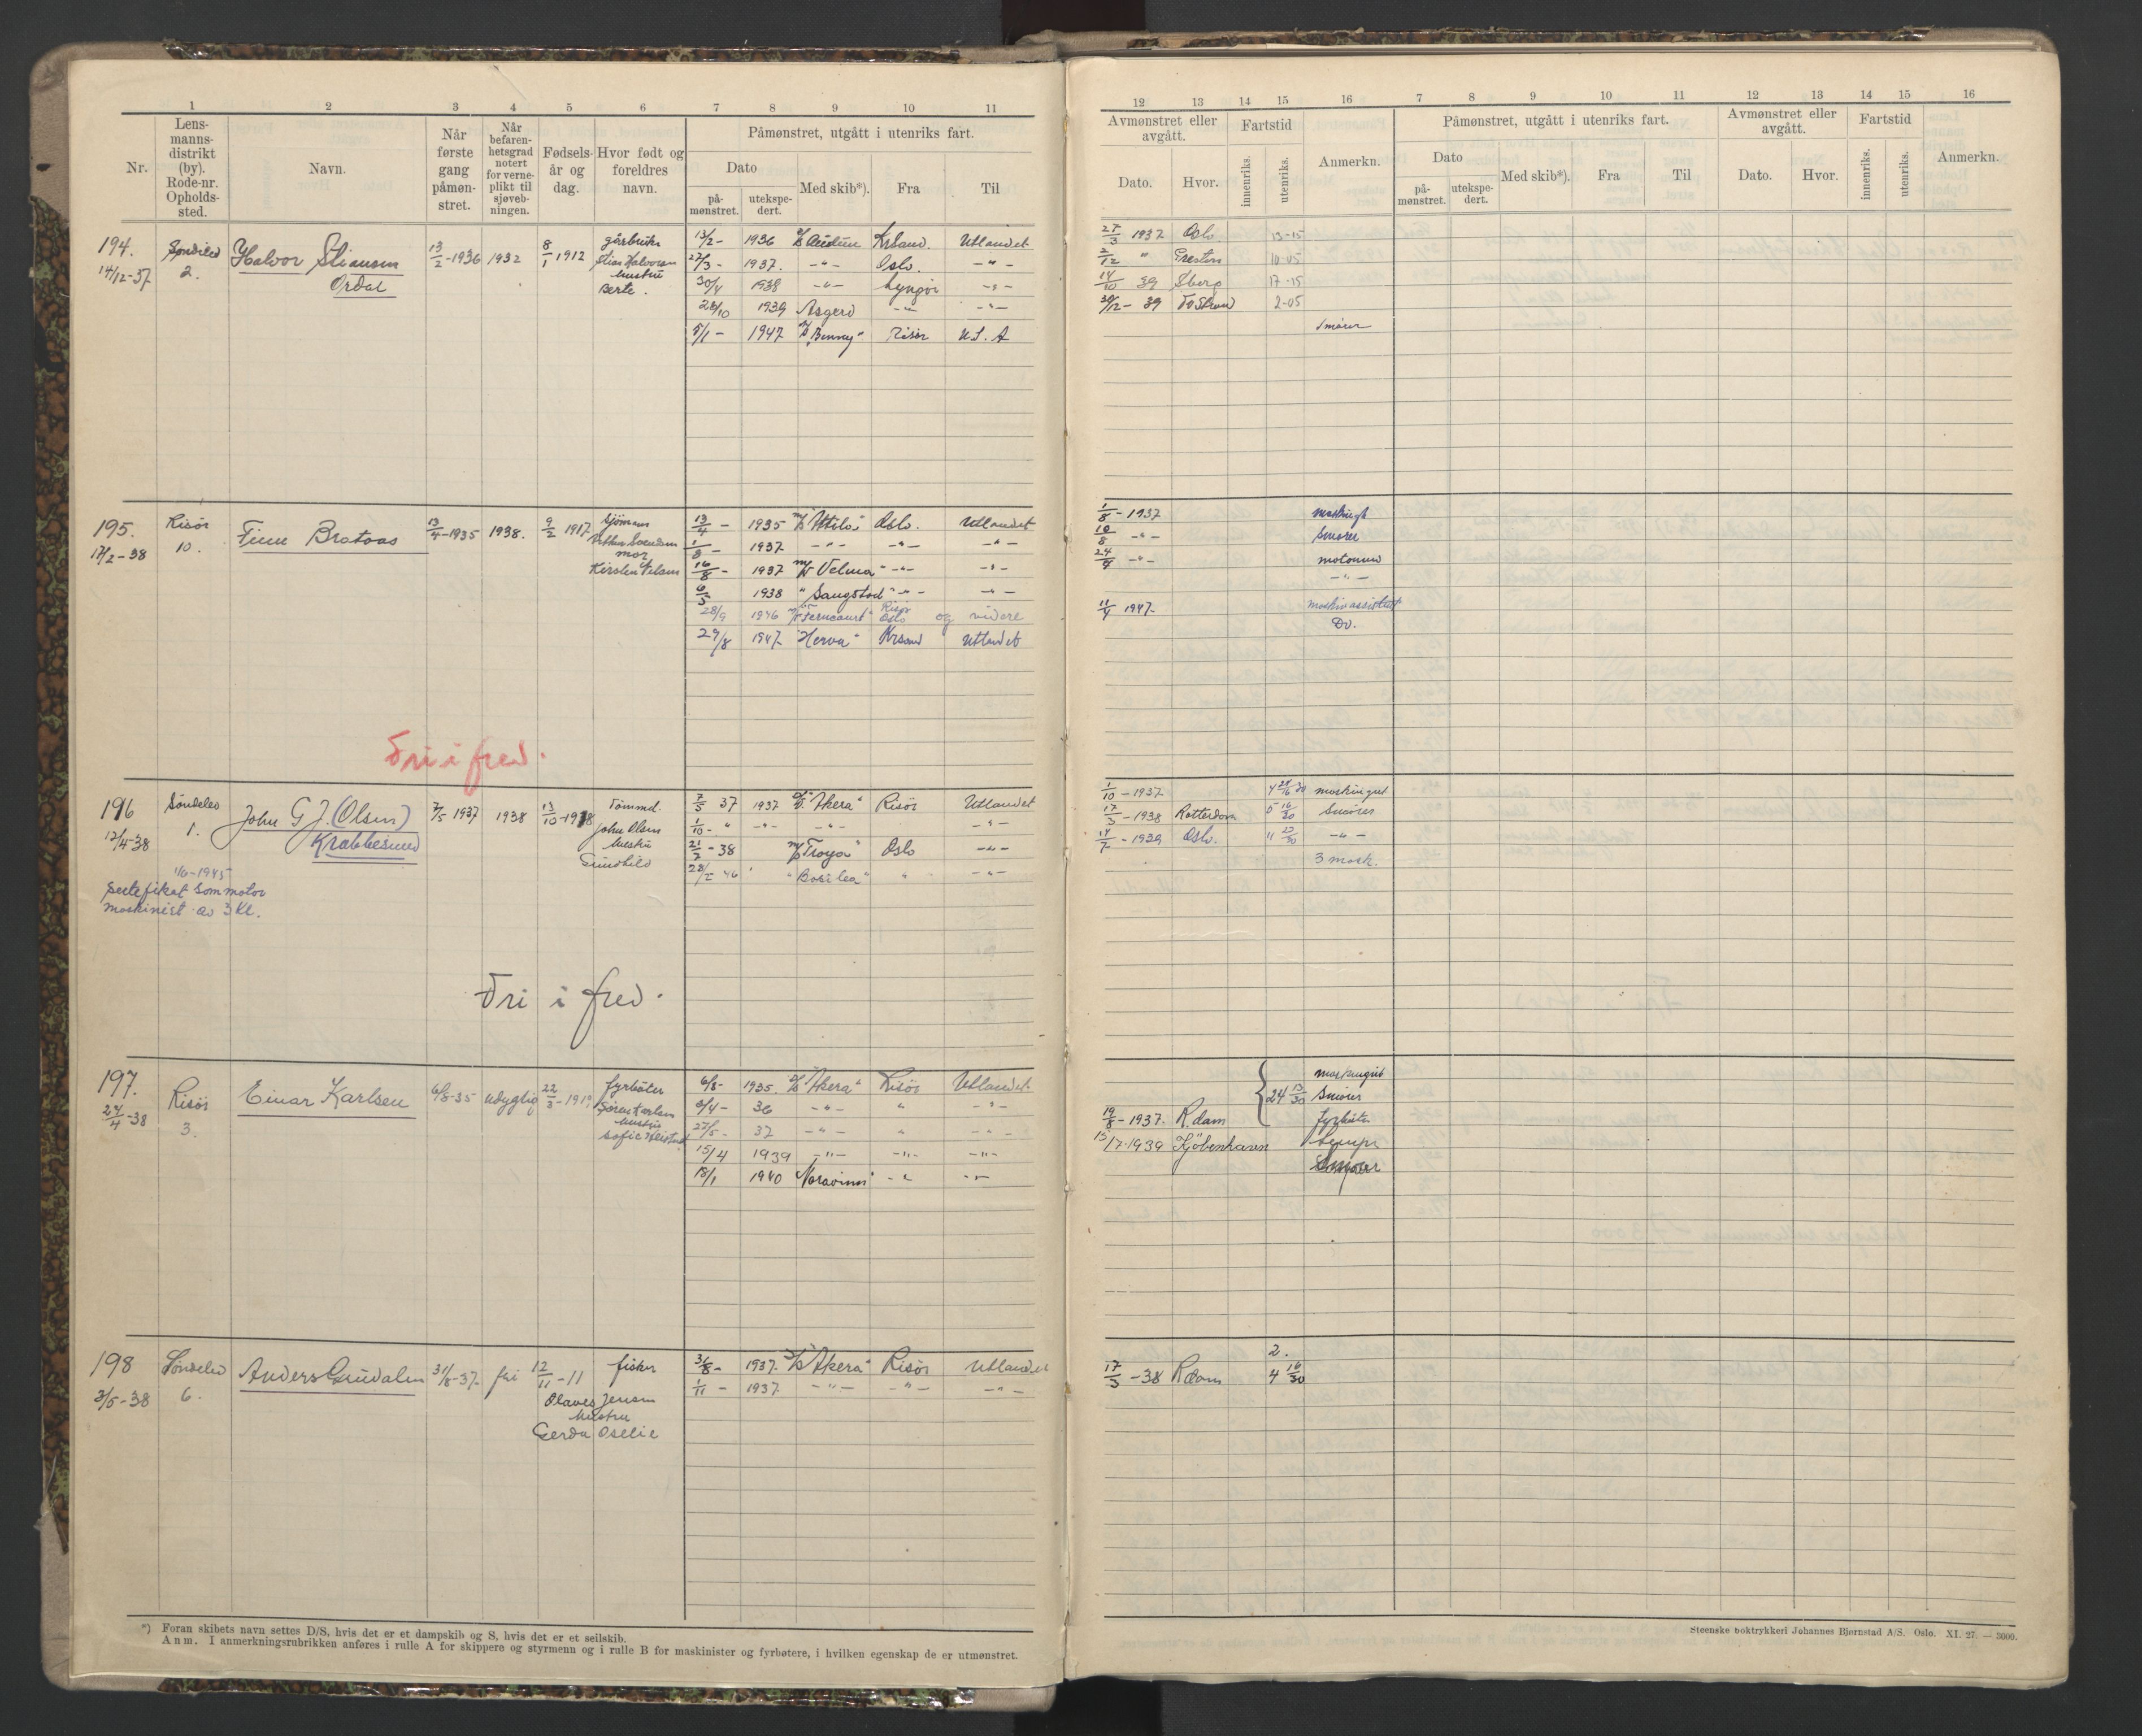 1 2 3 4 5 6 7 8 9 10 11
Nr.
Lens-
manns-
distrikt
(by).
Rode-nr.
Opholds-
sted.
Navn.
Når
første
gang
påmøn-
stret.
Når
befaren-
hetsgrad
notert
for verne-
plikt til
sjøveb-
ningen.
Fødsels-
år og
dag.
Hvor født og
foreldres
navn.
Påmønstret, utgått i utenriks fart.
Dato
på-
mønstret.
utekspe-
dert.
Med skib*).
Fra
Til
194. Søndeled Halvor Stiansen 13/2-1936 1932 8/1 1912 gårbruker 13/2- 1936 Krsand. Utlandet
14/12-37 2. Ordal Stian Halvorsen 27/3- 1937. -"- Oslo. -"-
hustru
Berte. 30/4 1938 -"- Lyngør -"-
28/10 1939 Asgerd -"- -"-
5/1- 1947 "Benny" Risør U.S.A
195. Risør Finn Brataas 13/4-1935 1938. 9/2 1917 sjømann 13/4- 1935 Oslo. Utlandet
17/2-38 10. 1/8- 1937 -"- -"- -"-
mor
Kirsten Nilsen 16/8- 1937 M/T Velma" -"- -"-
6/5 1938 "Saugstad" -"- -"-
28/9 1946 "Ferncourt" Risør Oslo og videre
29/8 1947 "Herva" Krsand Utlandet
Fri i fred.
196 Søndeled John G J. (Olsen) 7/5 1937 1938 13/10-1918 Tømmd. 7/5 37 1937 "Akera" Risør Utlandet
12/4-38 1. Krabbesund John Olsen 1/10- " -"- -"- -"-
hustru
Gunhild 21/2-38 Troya" Oslo -"-
28/2 46 "Bosilea" " -"-
1/6-1945
Sertefikat som motor
maskinist av 3 Kl.
Fri i fred.
197. Risør Einar Karlsen 6/8-35 udygtig 22/3-1919 fyrbøter 6/8- 1935. "Akera" Risør Utlandet
27/4-38 3. 3/4- 36 -"- " -"-
hustru
27/5- 37 -"- " -"-
15/4 1939 -"- -"- -"-
18/1 1940
198 Søndeled Anders Grindalen 31/8-37 fri 12/11-11 fisker 31/8- 1937. "Akera" Risør Utlandet
3/5-38 6. Olaves Jensen 1/11- 1937 -"- -"- -"-
hustru
Gerda Oselie
*) Foran skibets navn settes D/S, hvis det er et dampskib og S, hvis det er et seilskib.
Anm. I anmerkningsrubrikken anføres i rulle A for skippere og styrmenn og i rulle B for maskinister og fyrbøtere, i hvilken egenskap de er utmønstret.
12 13 14 15 16 7 8 9 10 11 12 13 14 15 16
Avmønstret eller
avgått.
Dato.
Hvor.
Fartstid
innenriks.
utenriks.
Anmerkn.
Påmønstret, utgått i utenriks fart.
Dato
på-
mønstret.
utekspe-
dert.
Med skib*).
Fra
Til
Avmønstret eller
avgått.
Dato.
Hvor.
Fartstid
innenriks.
utenriks.
Anmerkn.
27/3 1937 Oslo. 13-15
2/12 " Preston 10-05
14/10 39 Sberg 17-15
30/12-39 2-05
smører
1/8-1937
10/8 -"- Smører
24/4 -"- motormd
-"-
11/4 1947- maskinassistent
Do.
1/10-1937 maskingut
17/3-1938 Rotterdam 5 16/30 Smører
14/7-1939 Oslo. 11 23/30 -"-
3 mask.
maskingut
24 13/30 Smører
19/8-1937. R.dam fyrbøter
15/7-1939 Kjøbenhavn Lemper
2.
17/3-38 Rdam 4 16/30
Steenske boktrykkeri Johannes Bjørnstad A/S. Oslo. XI. 27. — 3000.